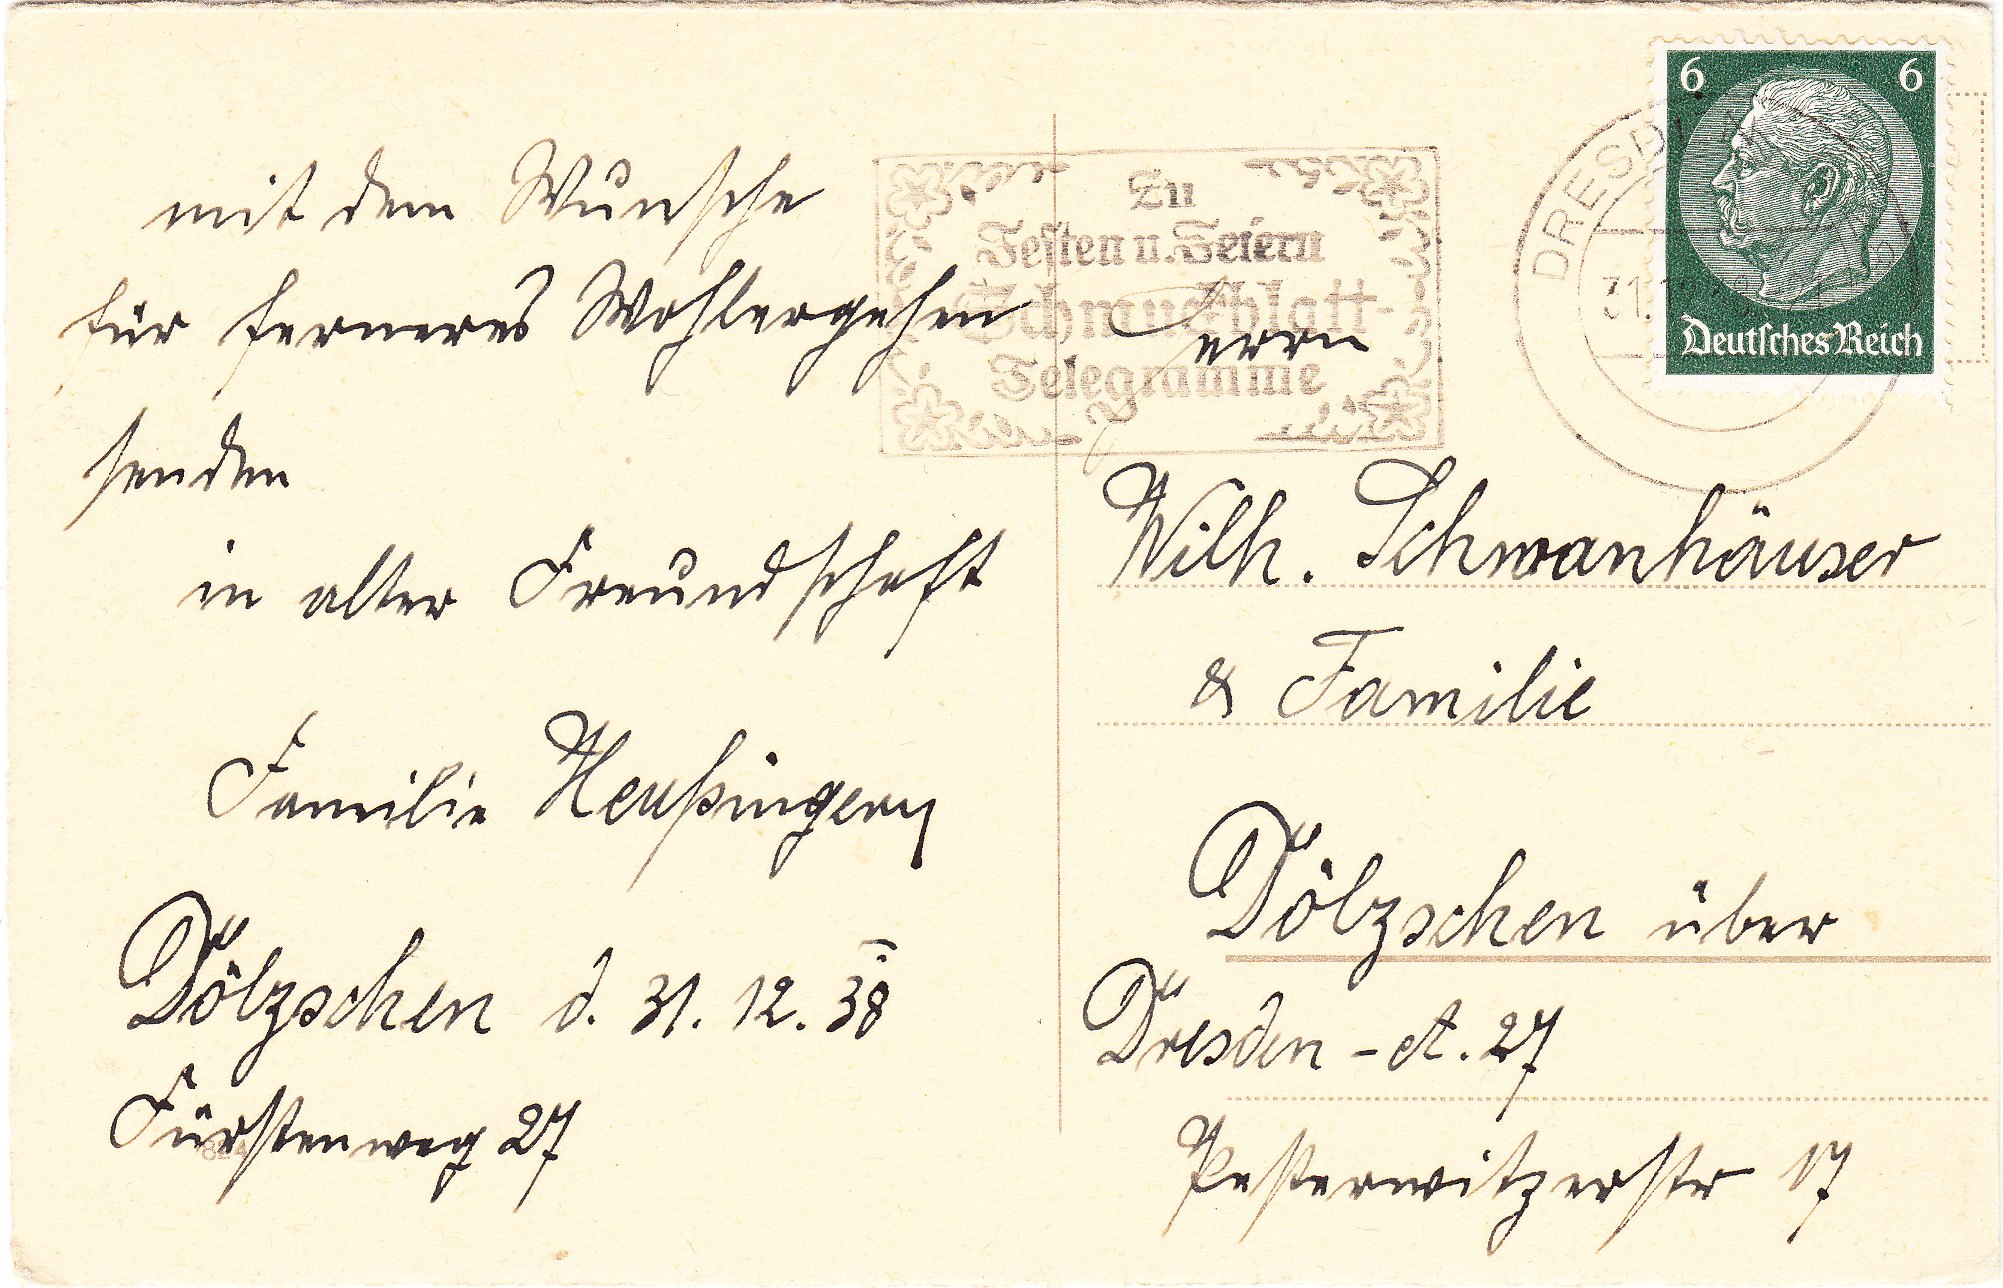 mit dem Wunsche
für ferneres Wohlergehen
senden
in alter Freundschaft
Familie Heußinger
Dölzschen d. 31. 12. 38
Fürstenweg 27
Zu
Festen u. Feiern
Schmuckblatt-
Telegramme
DRESDEN
31.
6 6
Deutsches Reich
Herrn
Wilh. Schwanhäuser
& Familie
Dölzschen über
Dresden - A. 27
Pesterwitzerstr 17